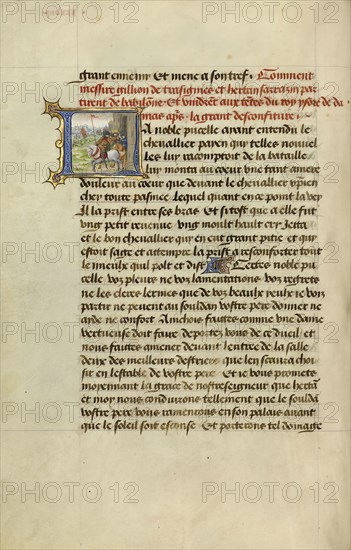 grant ennemy Et mene a son tref. Comment
messire gillion de trasignies et hertan sarrazin par
tirent de babilonne Et vindrent aux tentes du roy ysore de da
mas apres la grant desconfiture
La noble pucelle ayant entendu le
chevallier payen quy telles nouvel
les luy racomptoit de la bataille
luy monta au coeur une tant amere
douleur au coeur que devant le chevallier xpien
chey toute pasmee Lequel quant en ce point la vey
Il la prist entre ses bras Et si tost que a elle fut
ung petit revenue Ung moult hault cry Jetta
et le bon chevallier quy en eut grant pitie et quy
estoit sage et attempre la prist a reconforter tout
le mieulx quil polt et dist Certes noble pu
celle voz pleurs ne voz lamentations voz regretz
ne les cleres lermes que de voz beaulx yeulx je voy
partir ne peuent au souldan vostre pere donner ne
ayde ne confort Anchois faittes comme une dame
vertueuse doit faire deportez vous de ce dueil et
nous faittes amener devant lentree de la salle
deux des meilleurs destriers que len scaura choi
sir en lestable de vostre pere Et je vous prometz
moyennant la grace de nostre seigneur que hertan
et moy nous conduirons tellement que le souldan
vostre pere vous ramenrons en son palais avant
que le soleil soit esconse Et porterons tel domage